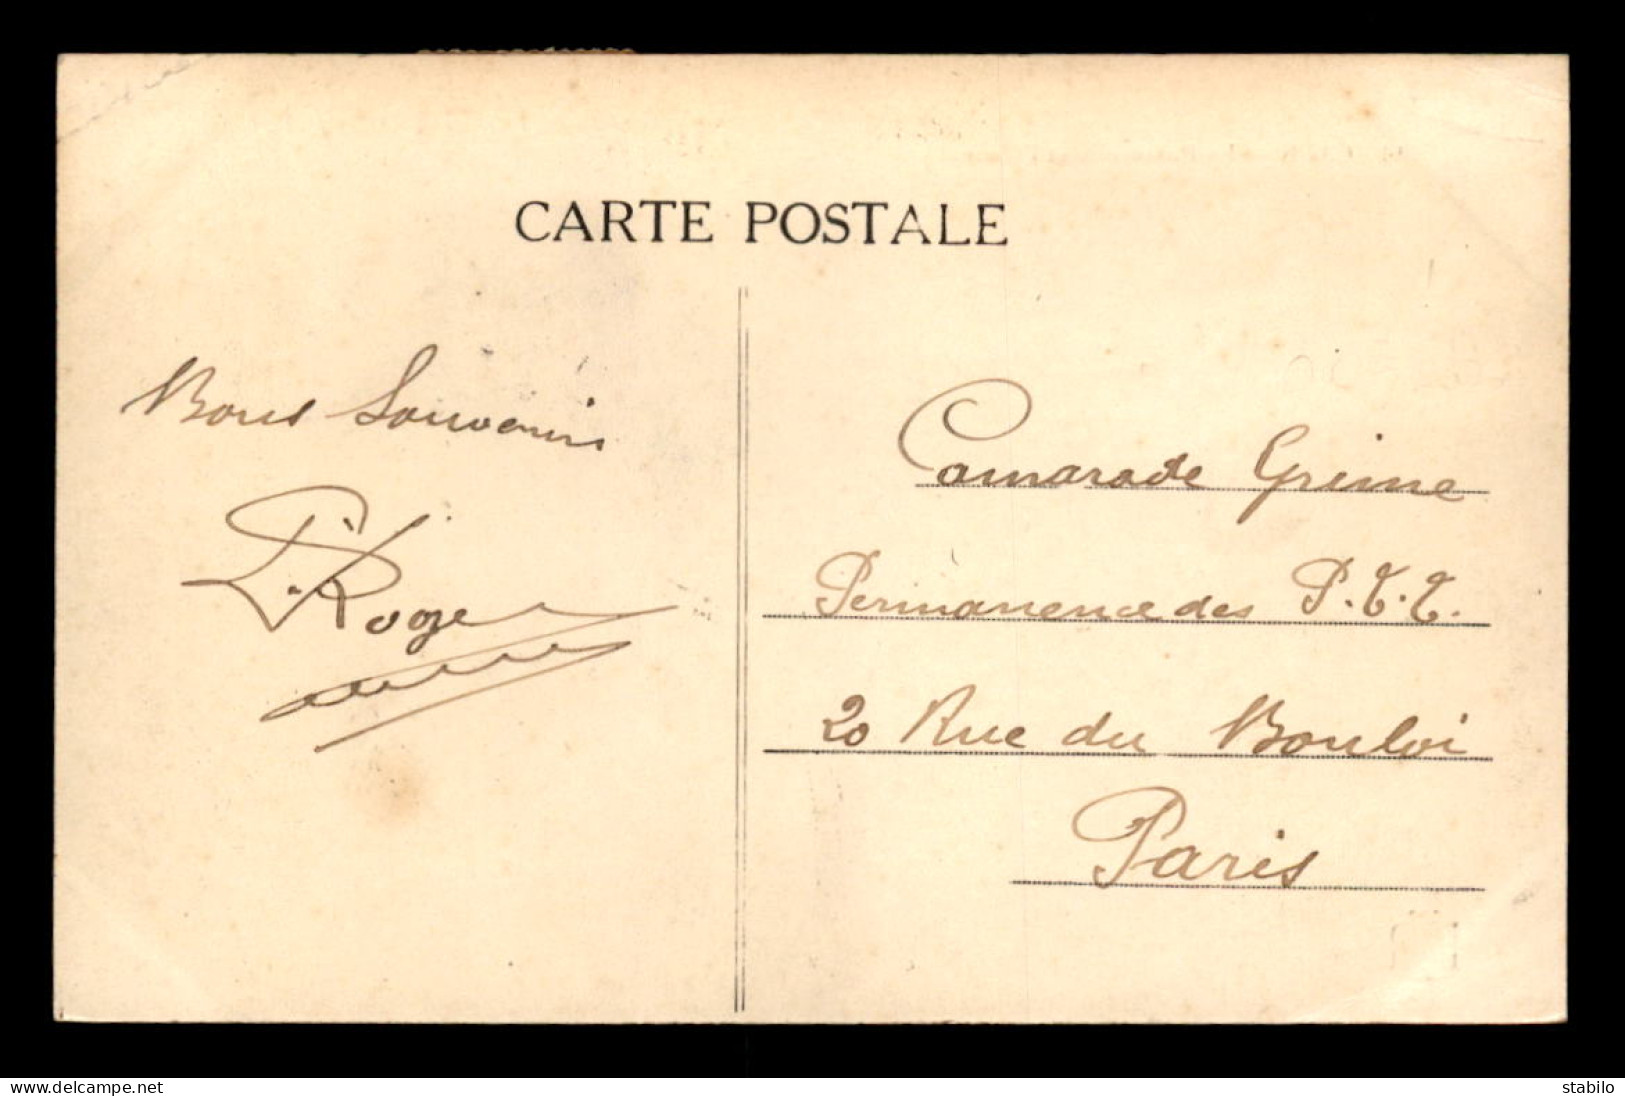 CARTE POSTALE
Bons Souvenirs
P. Roger
Camarade Grime
Permanence des P.T.T.
20 Rue du Bouloi
Paris
www.delcampe.net
stabilo